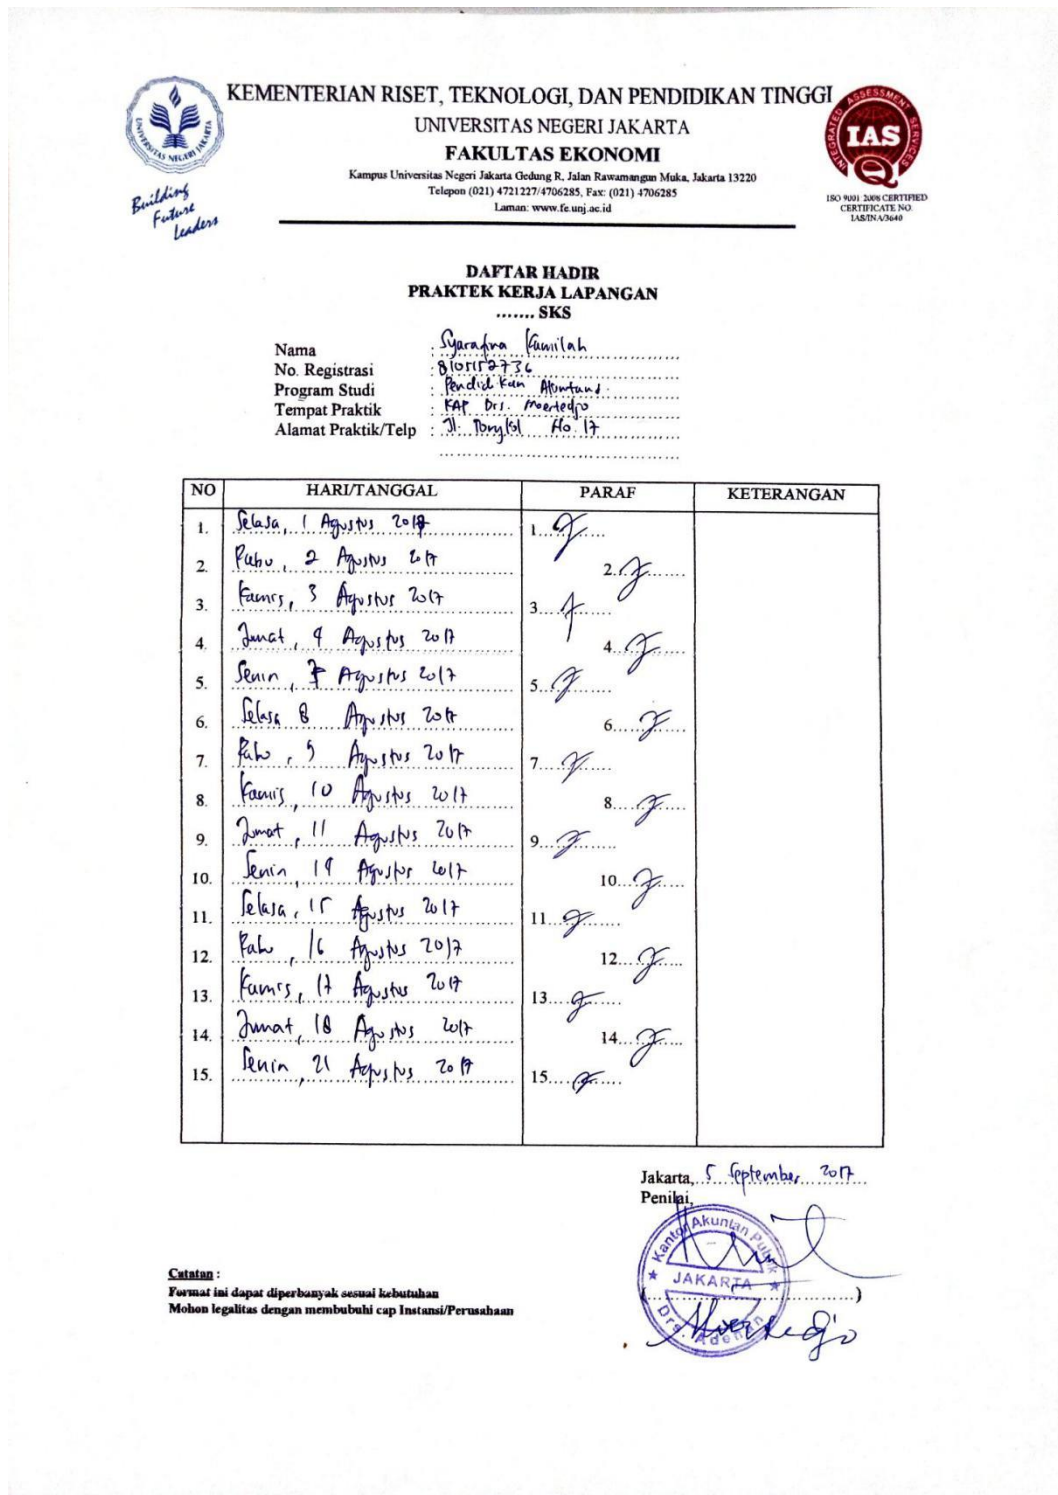 KEMENTERIAN RISET, TEKNOLOGI, DAN PENDIDIKAN TINGGI
UNIVERSITAS NEGERI JAKARTA
FAKULTAS EKONOMI
Kampus Universitas Negeri Jakarta Gedung R, Jalan Rawamangun Muka, Jakarta 13220
Telepon (021) 4721227/4706285, Fax: (021) 4706285
Laman: www.fe.unj.ac.id
UNIVERSITAS NEGERI JAKARTA
Building
Future
Leaders
INTEGRATED ASSESSMENT SERVICES
IAS
ISO 9001 2008 CERTIFIED
CERTIFICATE NO.
IAS/INA/3640
DAFTAR HADIR
PRAKTEK KERJA LAPANGAN
....... SKS
Nama : Kamilah
No. Registrasi : 8105152736
Program Studi : Pendidikan
Tempat Praktik : KAP Drs. Moertedjo
Alamat Praktik/Telp : Jl. No. 17
NO HARI/TANGGAL PARAF KETERANGAN
1. Selasa, 1 Agustus 2017 1.
2. Rabu, 2 Agustus 2017 2.
3. Kamis, 3 Agustus 2017 3.
4. Jumat, 4 Agustus 2017 4.
5. Senin, 7 Agustus 2017 5.
6. Selasa 8 Agustus 2017 6.
7. Rabu, 9 Agustus 2017 7.
8. Kamis, 10 Agustus 2017 8.
9. Jumat, 11 Agustus 2017 9.
10. Senin, 14 Agustus 2017 10.
11. Selasa, 15 Agustus 2017 11.
12. Rabu, 16 Agustus 2017 12.
13. Kamis, 17 Agustus 2017 13.
14. Jumat, 18 Agustus 2017 14.
15. Senin, 21 Agustus 2017 15.
Jakarta, 5 September 2017
Penilai,
Kantor Akuntan Publik
JAKARTA
Drs. Adenan
Moertedjo
Catatan :
Format ini dapat diperbanyak sesuai kebutuhan
Mohon legalitas dengan membubuhi cap Instansi/Perusahaan